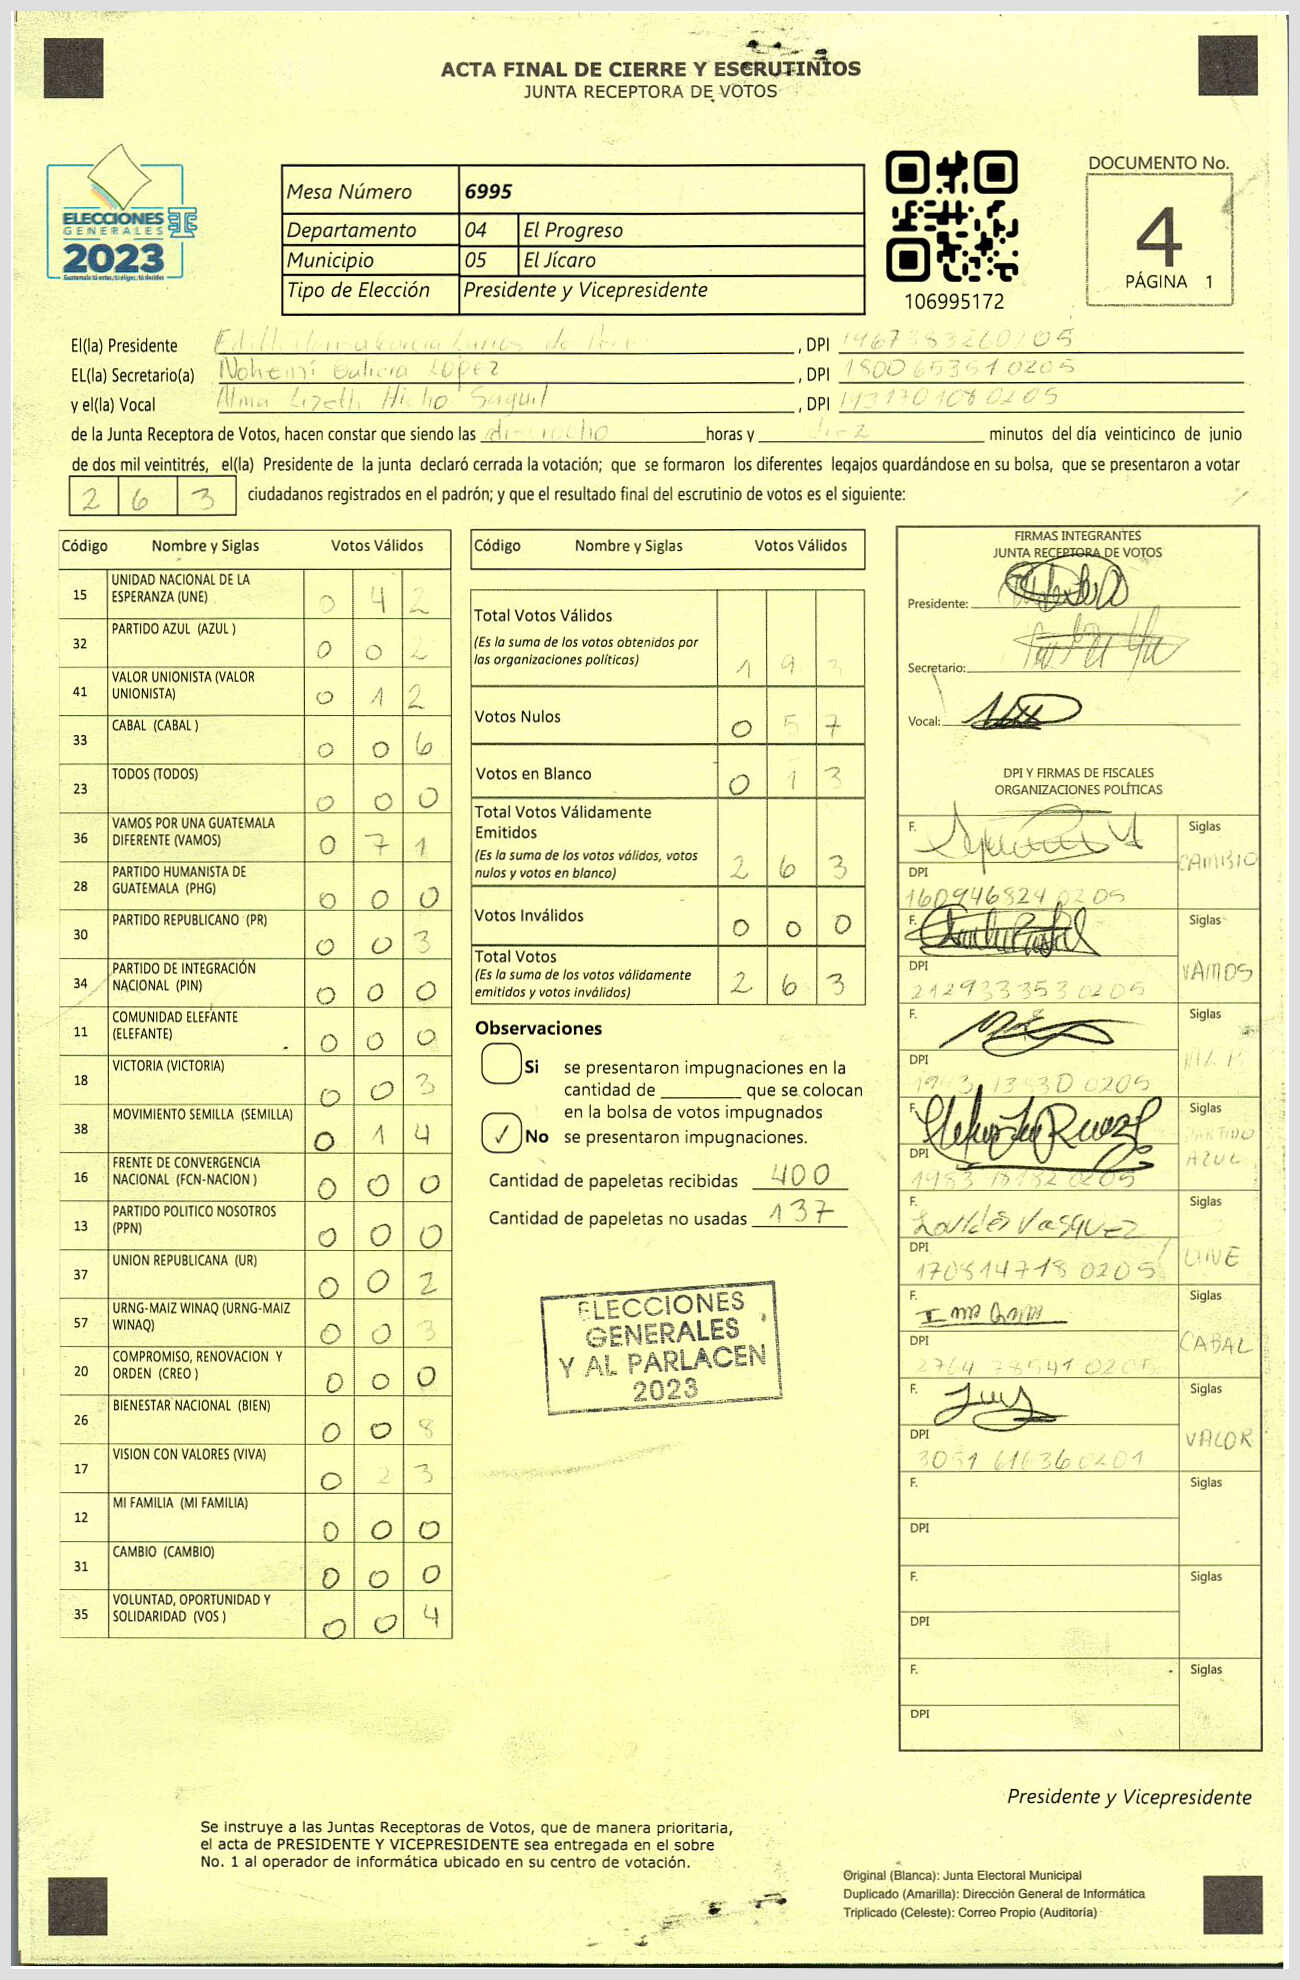 ACTA FINAL DE CIERRE Y ESCRUTINIOS
JUNTA RECEPTORA DE VOTOS
ELECCIONES
GENERALES
2023
Mesa Número 6995
Departamento 04 El Progreso
Municipio 05 El Jícaro
Tipo de Elección Presidente y Vicepresidente
106995172
DOCUMENTO No.
4
PÁGINA 1
El(la) Presidente , DPI
EL(la) Secretario(a) Nohemí Galicia López , DPI 1800 65351 0205
y el(la) Vocal Alma Lizeth Hicho Saguil , DPI
de la Junta Receptora de Votos, hacen constar que siendo las dieciocho horas y diez minutos del día veinticinco de junio
de dos mil veintitrés, el(la) Presidente de la junta declaró cerrada la votación; que se formaron los diferentes legajos guardándose en su bolsa, que se presentaron a votar
2 6 3 ciudadanos registrados en el padrón; y que el resultado final del escrutinio de votos es el siguiente:
Código Nombre y Siglas Votos Válidos
15 UNIDAD NACIONAL DE LA ESPERANZA (UNE) 0 4 2
32 PARTIDO AZUL (AZUL ) 0 0 2
41 VALOR UNIONISTA (VALOR UNIONISTA) 0 1 2
33 CABAL (CABAL ) 0 0 6
23 TODOS (TODOS) 0 0 0
36 VAMOS POR UNA GUATEMALA DIFERENTE (VAMOS) 0 7 1
28 PARTIDO HUMANISTA DE GUATEMALA (PHG) 0 0 0
30 PARTIDO REPUBLICANO (PR) 0 0 3
34 PARTIDO DE INTEGRACIÓN NACIONAL (PIN) 0 0 0
11 COMUNIDAD ELEFANTE (ELEFANTE) 0 0 0
18 VICTORIA (VICTORIA) 0 0 3
38 MOVIMIENTO SEMILLA (SEMILLA) 0 1 4
16 FRENTE DE CONVERGENCIA NACIONAL (FCN-NACION ) 0 0 0
13 PARTIDO POLITICO NOSOTROS (PPN) 0 0 0
37 UNION REPUBLICANA (UR) 0 0 2
57 URNG-MAIZ WINAQ (URNG-MAIZ WINAQ) 0 0 3
20 COMPROMISO, RENOVACION Y ORDEN (CREO ) 0 0 0
26 BIENESTAR NACIONAL (BIEN) 0 0 8
17 VISION CON VALORES (VIVA) 0 2 3
12 MI FAMILIA (MI FAMILIA) 0 0 0
31 CAMBIO (CAMBIO) 0 0 0
35 VOLUNTAD, OPORTUNIDAD Y SOLIDARIDAD (VOS ) 0 0 4
Código Nombre y Siglas Votos Válidos
Total Votos Válidos
(Es la suma de los votos obtenidos por
las organizaciones políticas) 1 9 3
Votos Nulos 0 5 7
Votos en Blanco 0 1 3
Total Votos Válidamente
Emitidos
(Es la suma de los votos válidos, votos
nulos y votos en blanco) 2 6 3
Votos Inválidos 0 0 0
Total Votos
(Es la suma de los votos válidamente
emitidos y votos inválidos) 2 6 3
Observaciones
Si se presentaron impugnaciones en la
cantidad de ________ que se colocan
en la bolsa de votos impugnados
✓ No se presentaron impugnaciones.
Cantidad de papeletas recibidas 400
Cantidad de papeletas no usadas 137
ELECCIONES
GENERALES
Y AL PARLACEN
2023
FIRMAS INTEGRANTES
JUNTA RECEPTORA DE VOTOS
Presidente:
Secretario:
Vocal:
DPI Y FIRMAS DE FISCALES
ORGANIZACIONES POLÍTICAS
F. Siglas
CAMBIO
DPI
160946824 0205
F. Siglas
VAMOS
DPI
212933353 0205
F. Siglas
DPI
F. Siglas
PARTIDO
AZUL
DPI
F. Siglas
Lourdes Vasquez
UNE
DPI
170814718 0205
F. Siglas
CABAL
DPI
2764 78541 0205
F. Siglas
VALOR
DPI
3051 61636 0201
F. Siglas
DPI
F. Siglas
DPI
F. Siglas
DPI
Presidente y Vicepresidente
Se instruye a las Juntas Receptoras de Votos, que de manera prioritaria,
el acta de PRESIDENTE Y VICEPRESIDENTE sea entregada en el sobre
No. 1 al operador de informática ubicado en su centro de votación.
Original (Blanca): Junta Electoral Municipal
Duplicado (Amarilla): Dirección General de Informática
Triplicado (Celeste): Correo Propio (Auditoría)